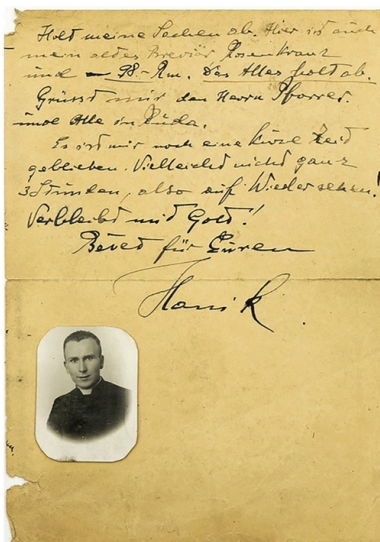 Holt meine Sachen ab. Hier ist auch
mein altes Brevier, Rosenkranz
und 98.- Rm. Das Alles holt ab.
Grüsst mir den Herrn Pfarrer.
und Alle in Ruda.
Es ist mir noch eine kurze Zeit
geblieben. Vielleicht nicht ganz
3 Stunden, also auf Wiedersehen!
Verbleibt mit Gott!
Betet für Euren
Hanik